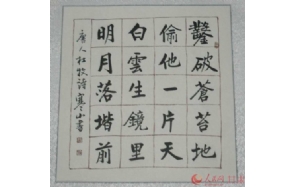 鑿破蒼苔地
偷他一片天
白雲生鏡里
明月落堦前
唐人杜牧詩寒山書